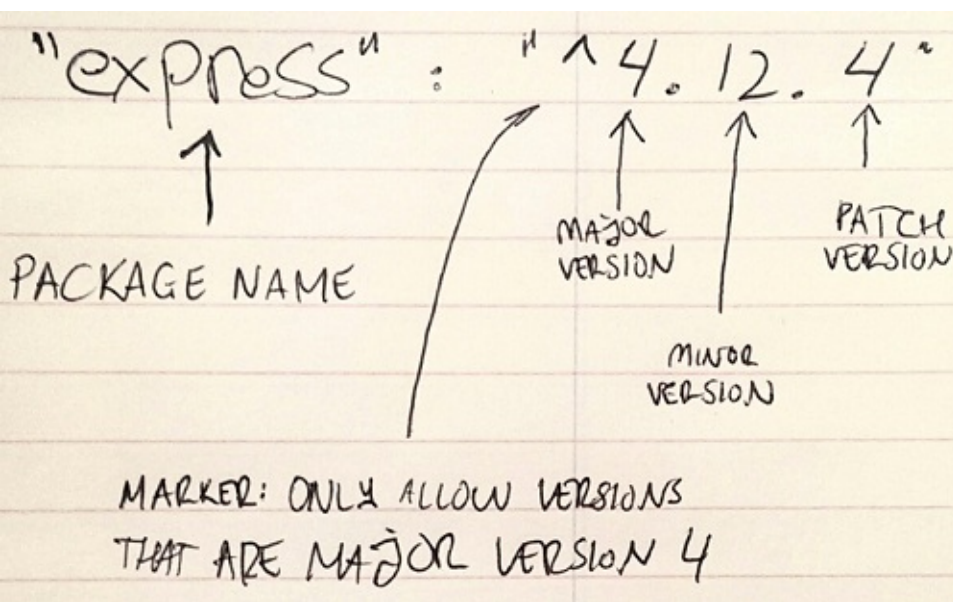 "express" : "^4.12.4"
PACKAGE NAME
MAJOR
VERSION
PATCH
VERSION
MINOR
VERSION
MARKER: ONLY ALLOW VERSIONS
THAT ARE MAJOR VERSION 4